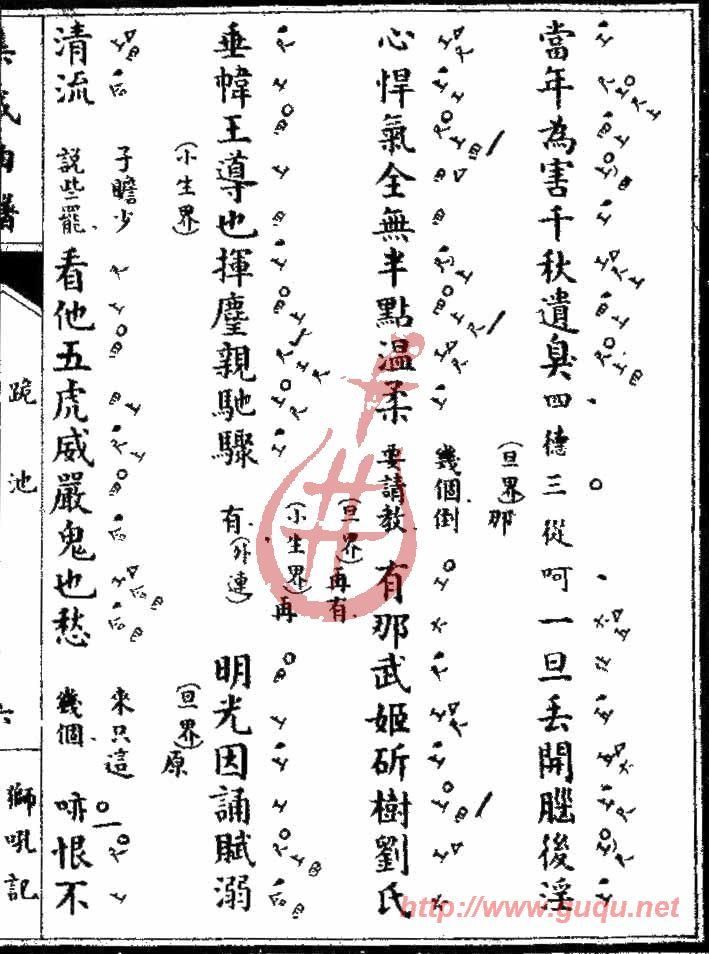 當年為害千秋遺臭四德三從呵一旦丟開腦後淫
(旦界)那
幾個倒
心悍氣全無半點溫柔要請教有那武姬斫樹劉氏
(旦界)再有
(小生界)再
垂幃王導也揮麈親馳驟有(外連)明光因誦賦溺
(小生界)
(旦界)原
子瞻少 來只這
清流說些罷看他五虎威嚴鬼也愁幾個唦恨不
集成曲譜
跪池
六
獅吼記
http://www.guqu.net